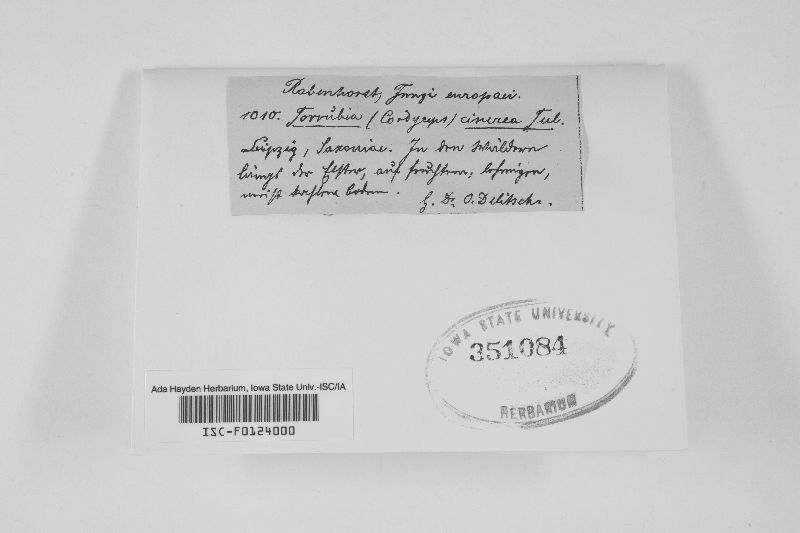 Rabenhorst, Fungi europaei.
1010. Torrubia (Cordyceps) cinerea Tul.
Leipzig, Saxoniae. In den Wäldern
längs der Elster, auf feuchtem, lehmigen,
meist kahlem Boden.
G. Dr. O. Delitsch.
IOWA STATE UNIVERSITY
351084
HERBARIUM
Ada Hayden Herbarium, Iowa State Univ.-ISC/IA
ISC-F0124000